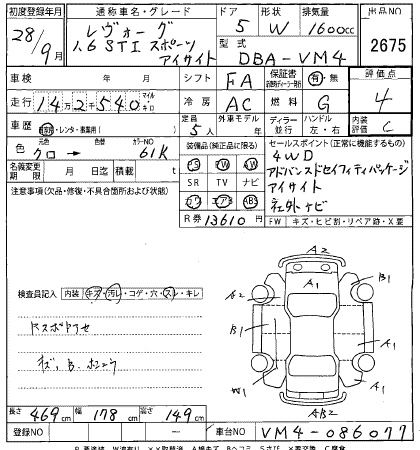 初度登録年月 通称車名・グレード ドア 形状 排気量 出品NO
28/9月 レヴォーグ 1.6 STI スポーツ アイサイト 5 W 1600cc 2675
型式 DBA-VM4
車検 年 月 シフト FA 保証書 有・無 評価点 4
走行 142540 マイル キロ 冷房 AC 燃料 G 内装評価 C
車歴 自家用・レンタ・事業用( ) 定員 5人 外車モデル ディーラー 並行 ハンドル 左・右
色 元色 クロ → 色替 カラーNO 61K
装備品(純正品に限る) セールスポイント(正常に機能するもの)
名義変更期限 月 日迄 積載 t
PS PW AW
SR TV ナビ
カワ エアB ABS
R券 13610円
4WD
アドバンスドセイフティパッケージ
アイサイト
社外ナビ
注意事項(欠品・修復・不具合箇所および状態)
FW キズ・ヒビ割・リペア跡・X要
検査員記入 内装 キズ・汚レ・コゲ・穴・スレ・キレ
ドスボアセ
キズ、B、ホコウ
A2
A2 A1 B1
B1 A1
W1 A1 A1
AB2
長さ 469cm 幅 178cm 高さ 149cm
登録NO 車台NO VM4-086077